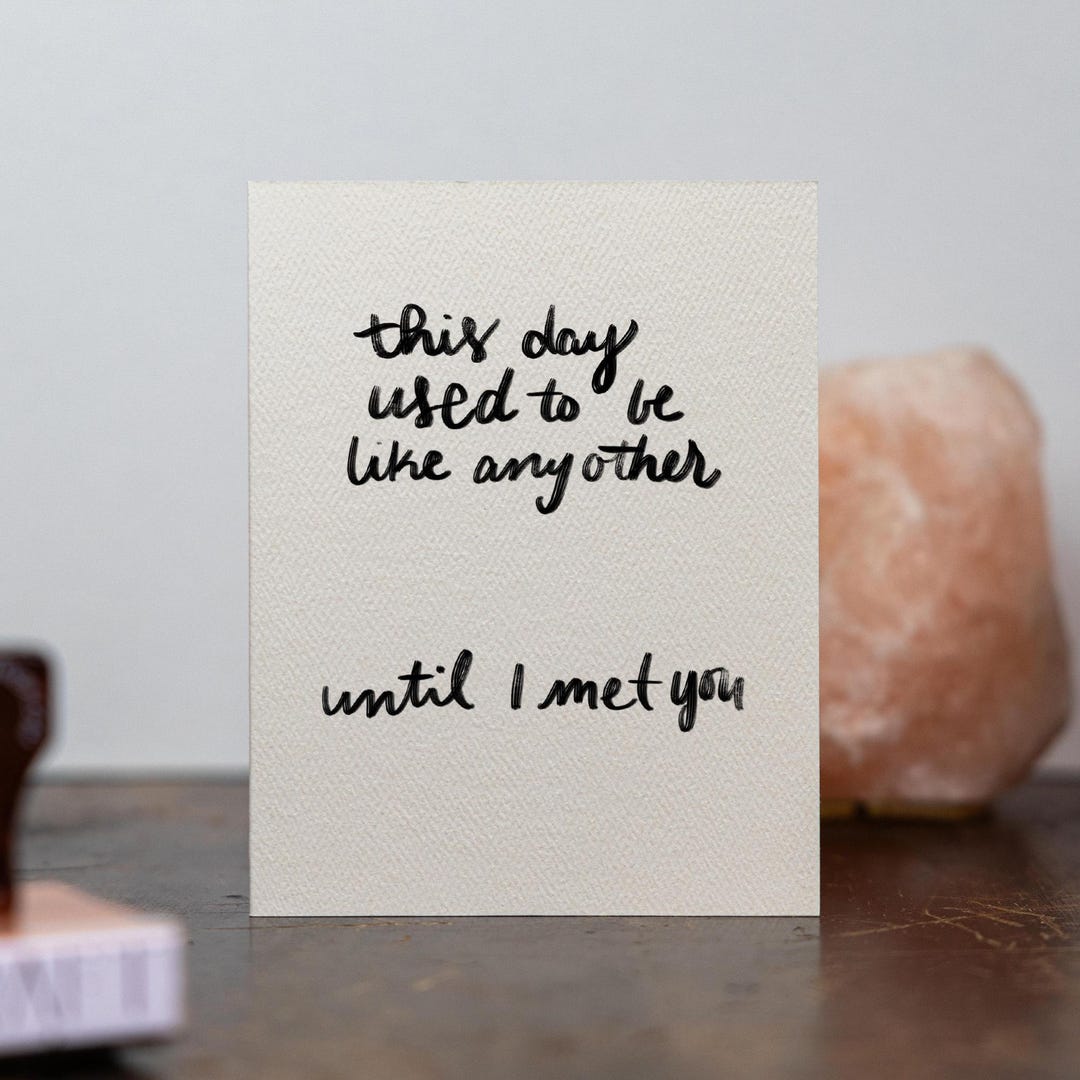 this day
used to be
like any other
until I met you